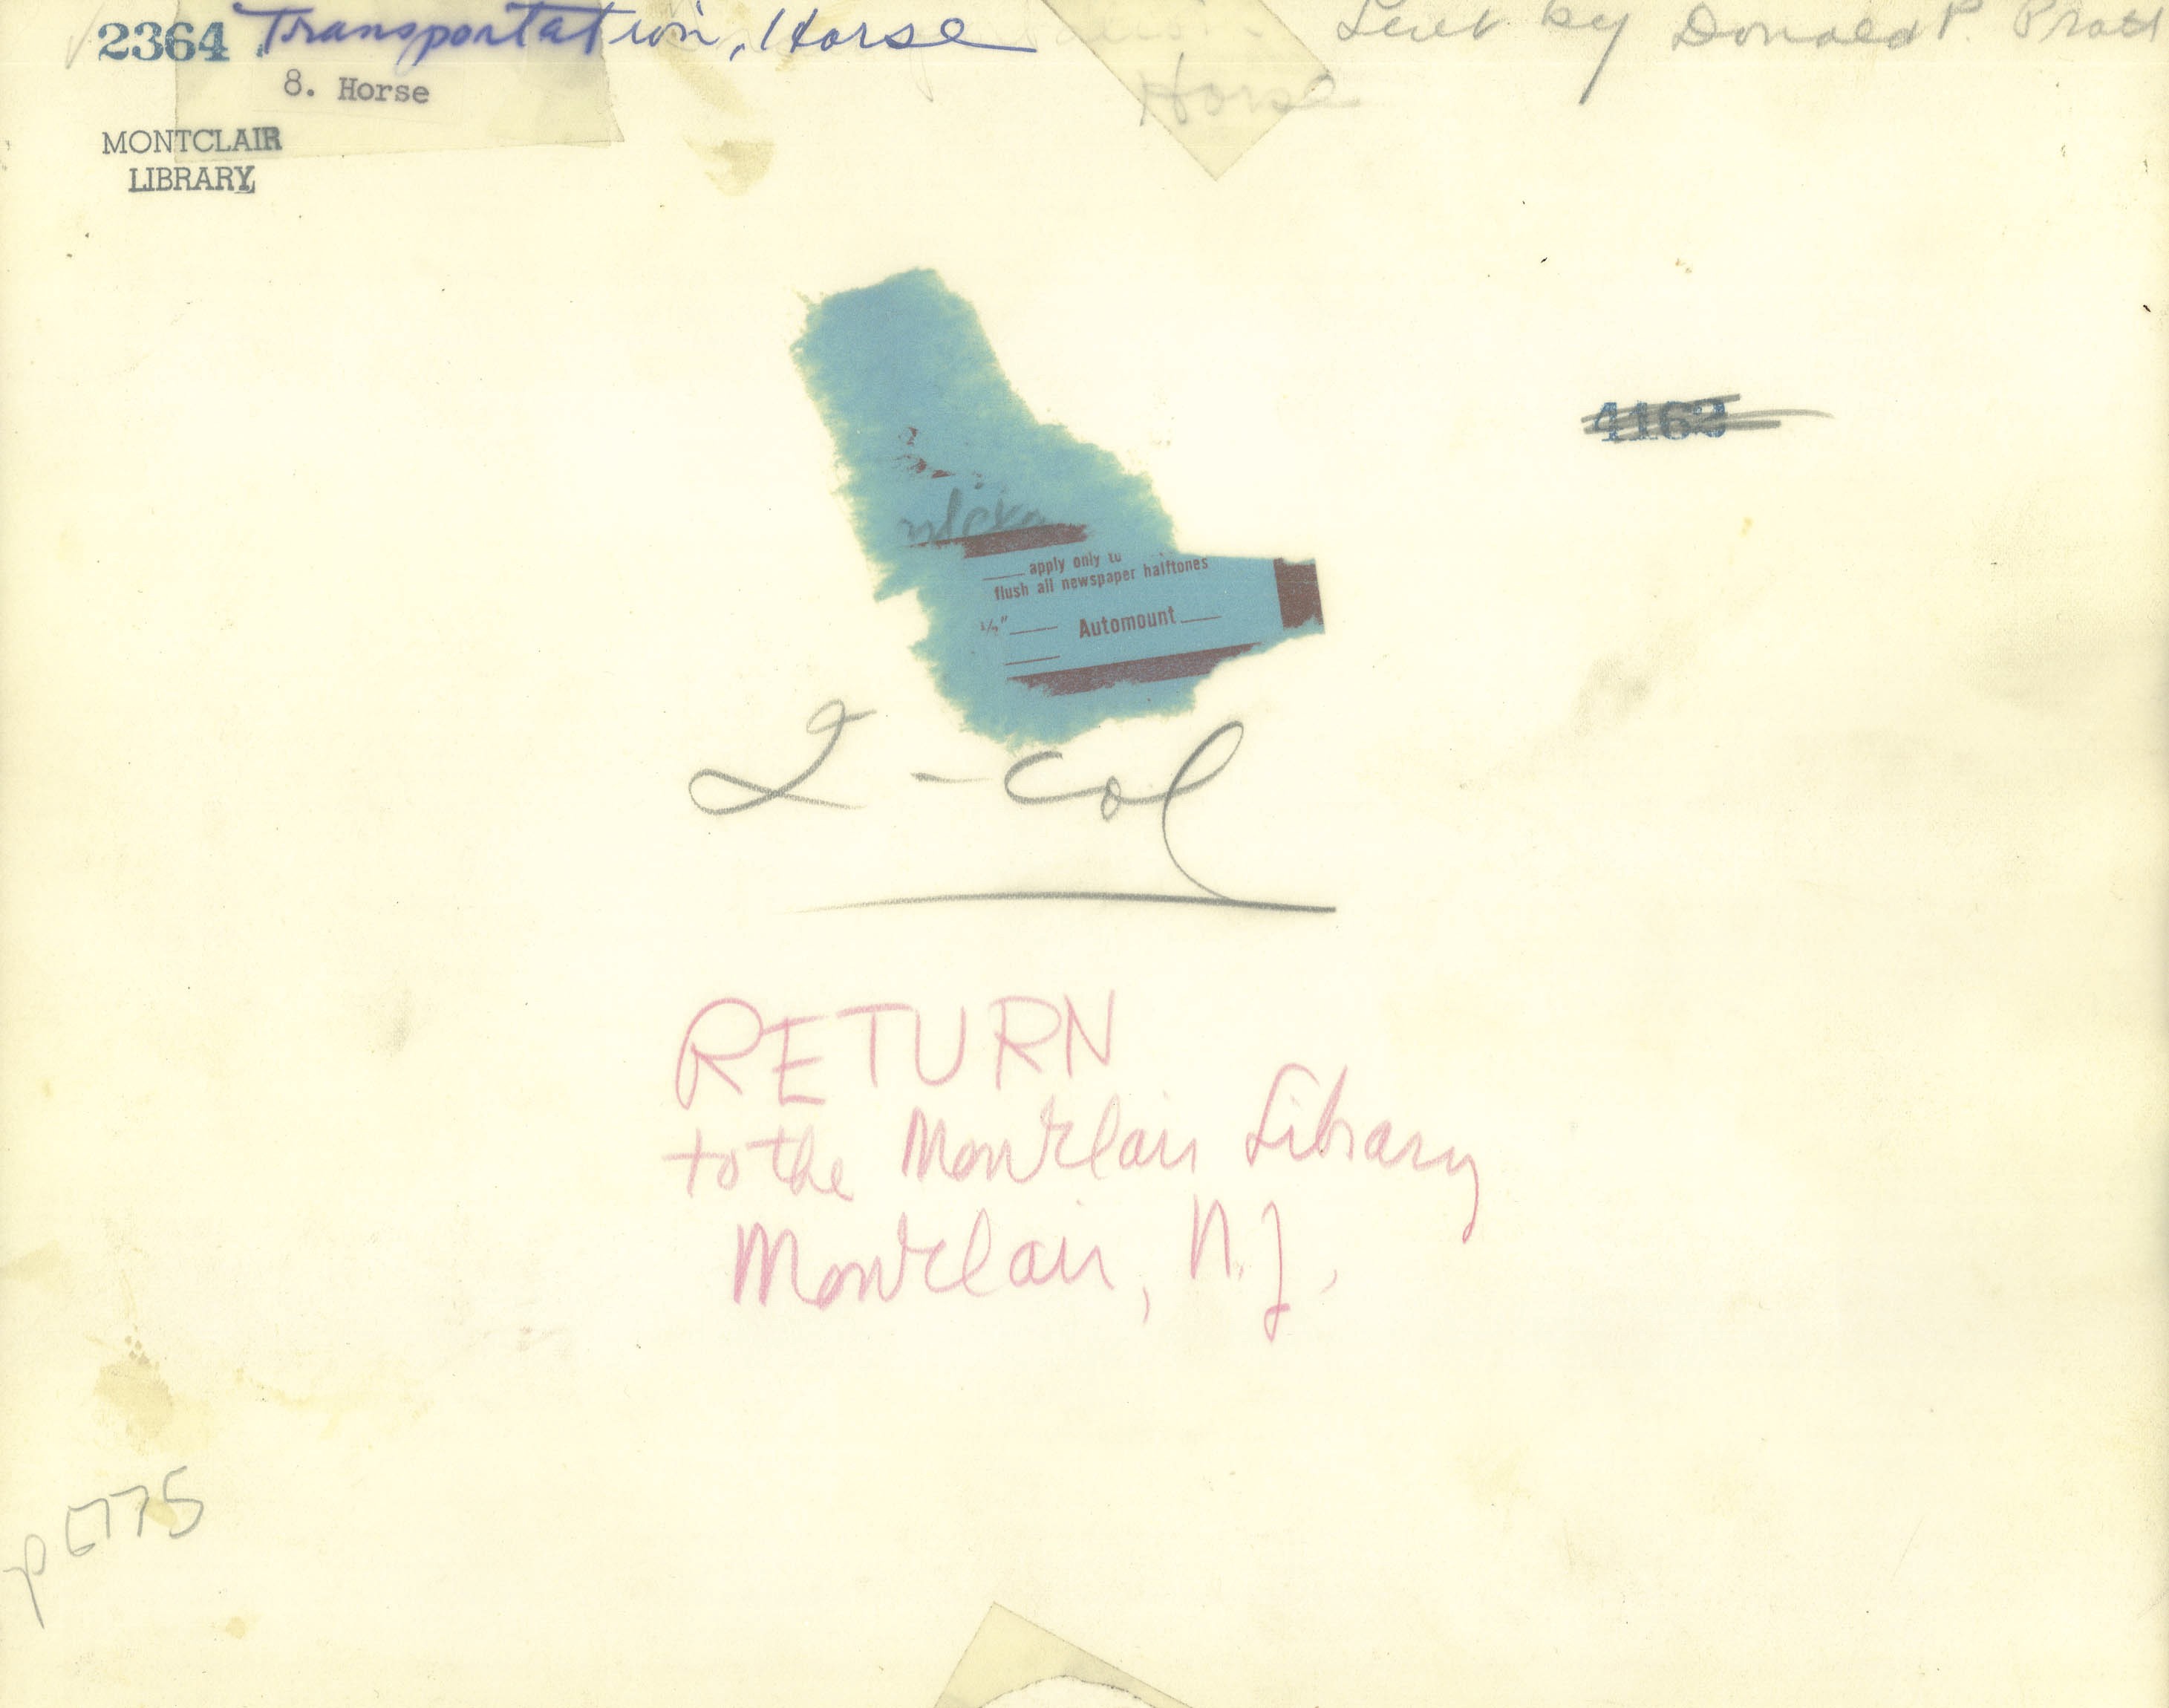 2364 Transportation, Horse
Lent by Donald P. Pratt
8. Horse
Horse
MONTCLAIR
LIBRARY
4163
apply only to
flush all newspaper halftones
1/2" Automount
2-col
RETURN
to the Montclair Library
Montclair, N.J.
p E775